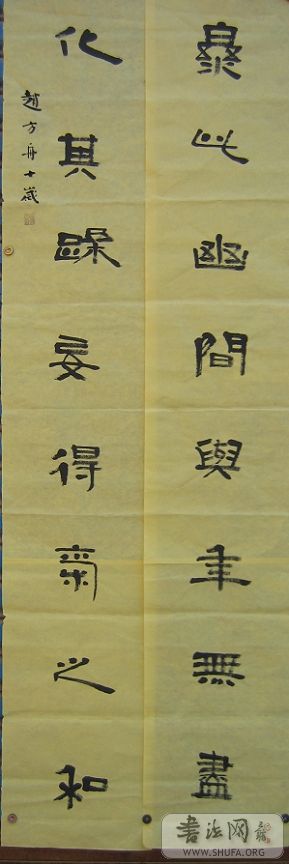 此幽間與年無盡
化其躁妄得之和
趙方舟十歲
书法网
WWW.SHUFA.ORG